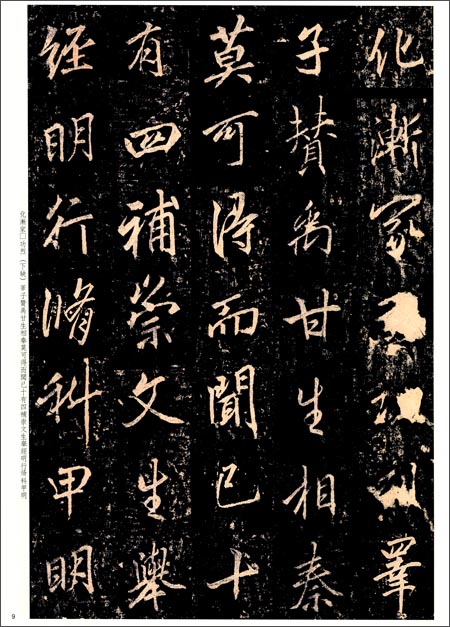 化漸家功睪
子贊禹甘生相秦
莫可得而聞已十
有四補崇文生舉
經明行脩科甲明
化漸家□功烈（下缺）睪子贊禹甘生相秦莫可得而聞已十有四補崇文生舉經明行脩科甲明
9